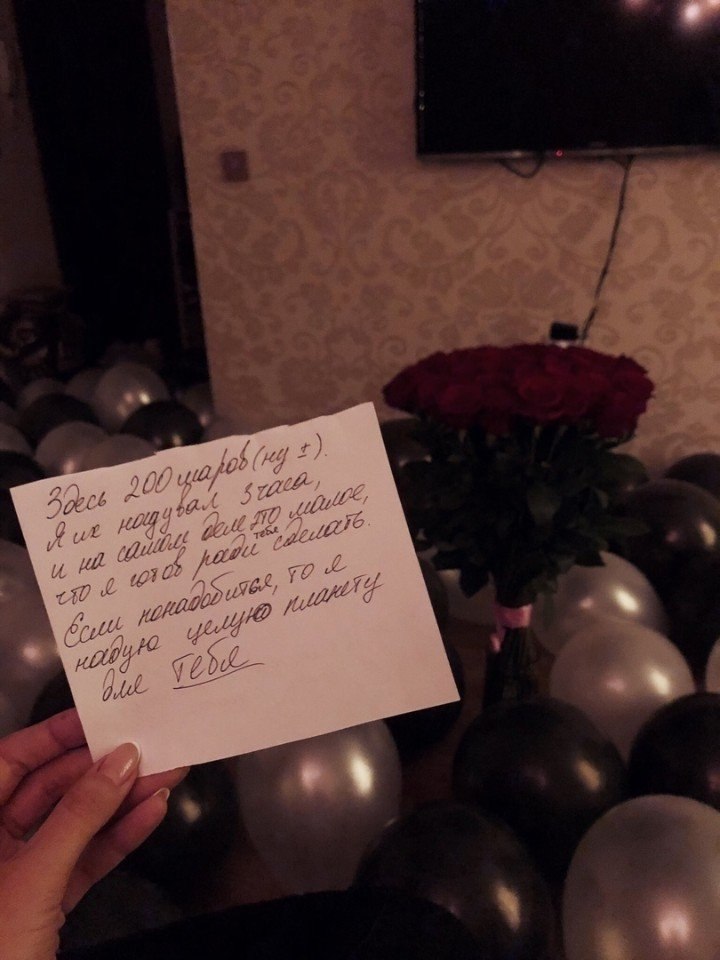 Здесь 200 шаров (ну ±).
Я их надувал 3 часа,
и на самом деле это малое,
что я готов ради тебя сделать.
Если понадобиться, то я
надую целую планету
для тебя